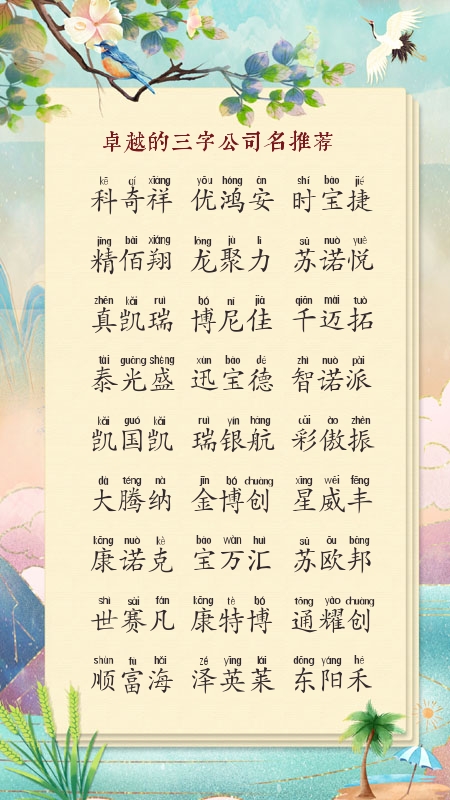 卓越的三字公司名推荐
kē qí xiáng yōu hóng ān shí bǎo jié
科奇祥 优鸿安 时宝捷
jīng bǎi xiáng lóng jù lì sū nuò yuè
精佰翔 龙聚力 苏诺悦
zhēn kǎi ruì bó ní jiā qiān mài tuò
真凯瑞 博尼佳 千迈拓
tài guāng shèng xùn bǎo dé zhì nuò pài
泰光盛 迅宝德 智诺派
kǎi guó kǎi ruì yín háng cǎi ào zhèn
凯国凯 瑞银航 彩傲振
dà téng nà jīn bó chuàng xīng wēi fēng
大腾纳 金博创 星威丰
kāng nuò kè bǎo wàn huì sū ōu bāng
康诺克 宝万汇 苏欧邦
shì sài fán kāng tè bó tōng yào chuàng
世赛凡 康特博 通耀创
shùn fù hǎi zé yīng lái dōng yáng hé
顺富海 泽英莱 东阳禾